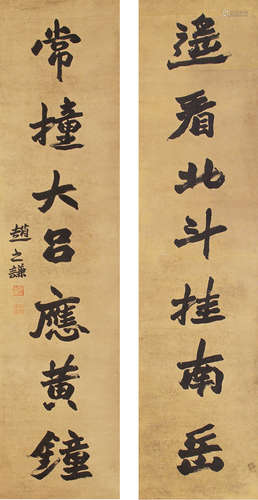 遥看北斗挂南岳
常撞大吕應黄鐘
趙之謙